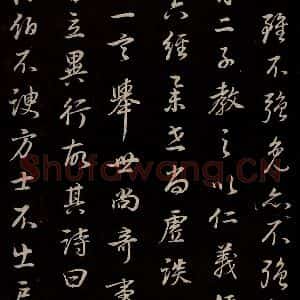 雖不強亦不強
二子教之以仁義
六經世尚虛談
一言舉世尚奇事
立異行故其詩曰
伯不諛方士不出戶
Shufawang.CN